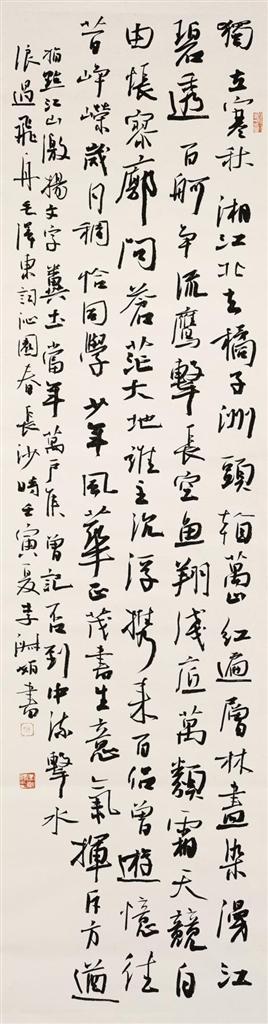 獨立寒秋湘江北去橘子洲頭看萬山紅遍層林盡染漫江
碧透百舸爭流鷹擊長空魚翔淺底萬類霜天競自
由悵寥廓問蒼茫大地誰主沉浮攜來百侶曾遊憶往
昔崢嶸歲月稠恰同學少年風華正茂書生意氣揮斥方遒
指點江山激揚文字糞土當年萬戶侯曾記否到中流擊水
浪遏飛舟毛澤東詞沁園春長沙時壬寅夏李書